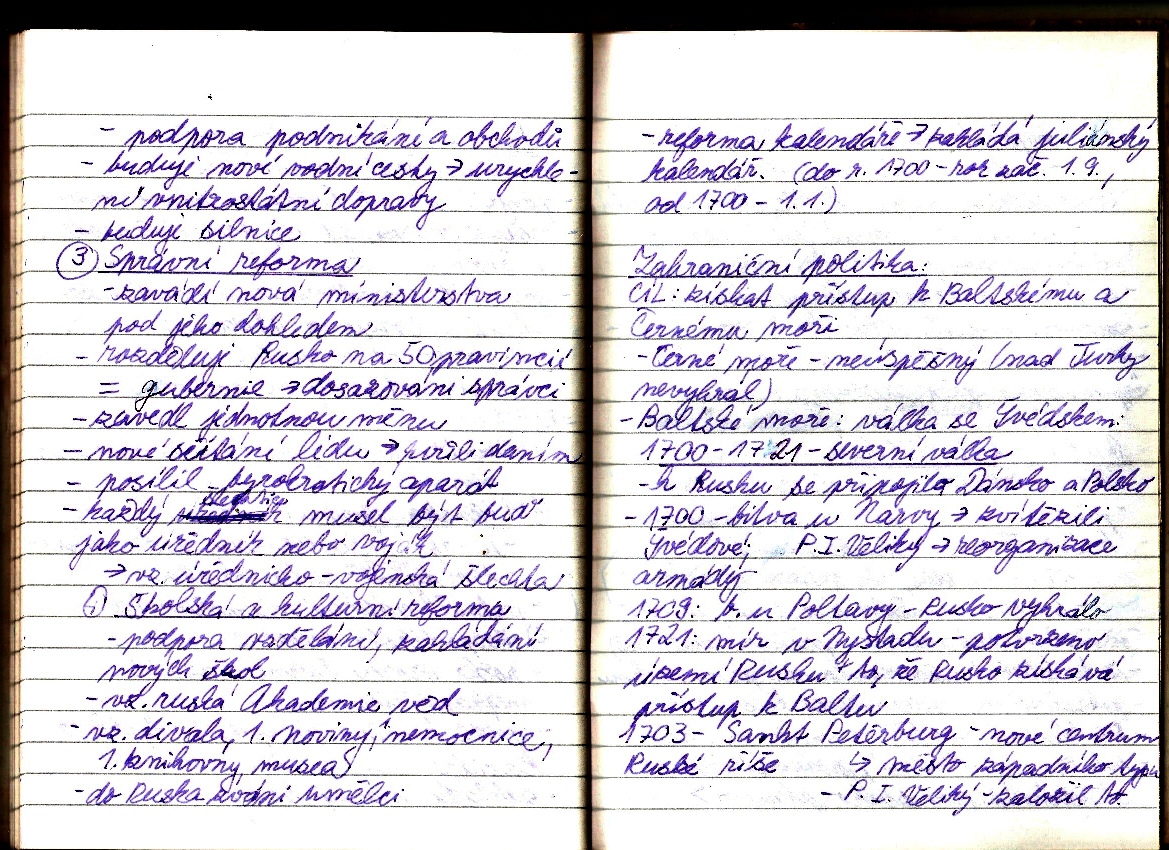 - podpora podnikání a obchodu
- buduje nové vodní cesty → urychle-
ní vnitrostátní dopravy
- buduje silnice
③ Správní reforma
- zavádí nová ministerstva
pod jeho dohledem
- rozděluje Rusko na 50 provincií
= gubernie → dosazování správci
- zavedl jednotnou měnu
- nové sčítání lidu →
- posílil byrokratický aparát
- každý šlechtic musel být buď
jako úředník nebo voják
→ vz. úřednicko-vojenská šlechta
Školská a kulturní reforma
- podpora vzdělání, zakládání
nových škol
- vz. ruská Akademie věd
- vz. divadla, 1. noviny, nemocnice,
1. knihovny, musea
- do Ruska zváni umělci
- reforma kalendáře → zakládá juliánský
kalendář. (do r. 1700 - rok zač. 1.9.,
od 1700 - 1.1.)
Zahraniční politika:
CÍL: získat přístup k Baltskému a
Černému moři
- Černé moře - neúspěšný (nad Turky
nevyhrál)
- Baltské moře: válka se Švédskem:
1700-1721 - severní válka
- k Rusku se připojilo Dánsko a Polsko
- 1700 - bitva u Narvy → zvítězili
Švédové, P. I. Veliký → reorganizace
armády
1709: b. u Poltavy - Rusko vyhrálo
1721: mír v Nystadu - potvrzeno
území Rusku + to, že Rusko získává
přístup k Baltu
1703 - Sankt Petěrburg - nové centrum
Ruské říše ↳ město západního typu
- P. I. Veliký - založil to.